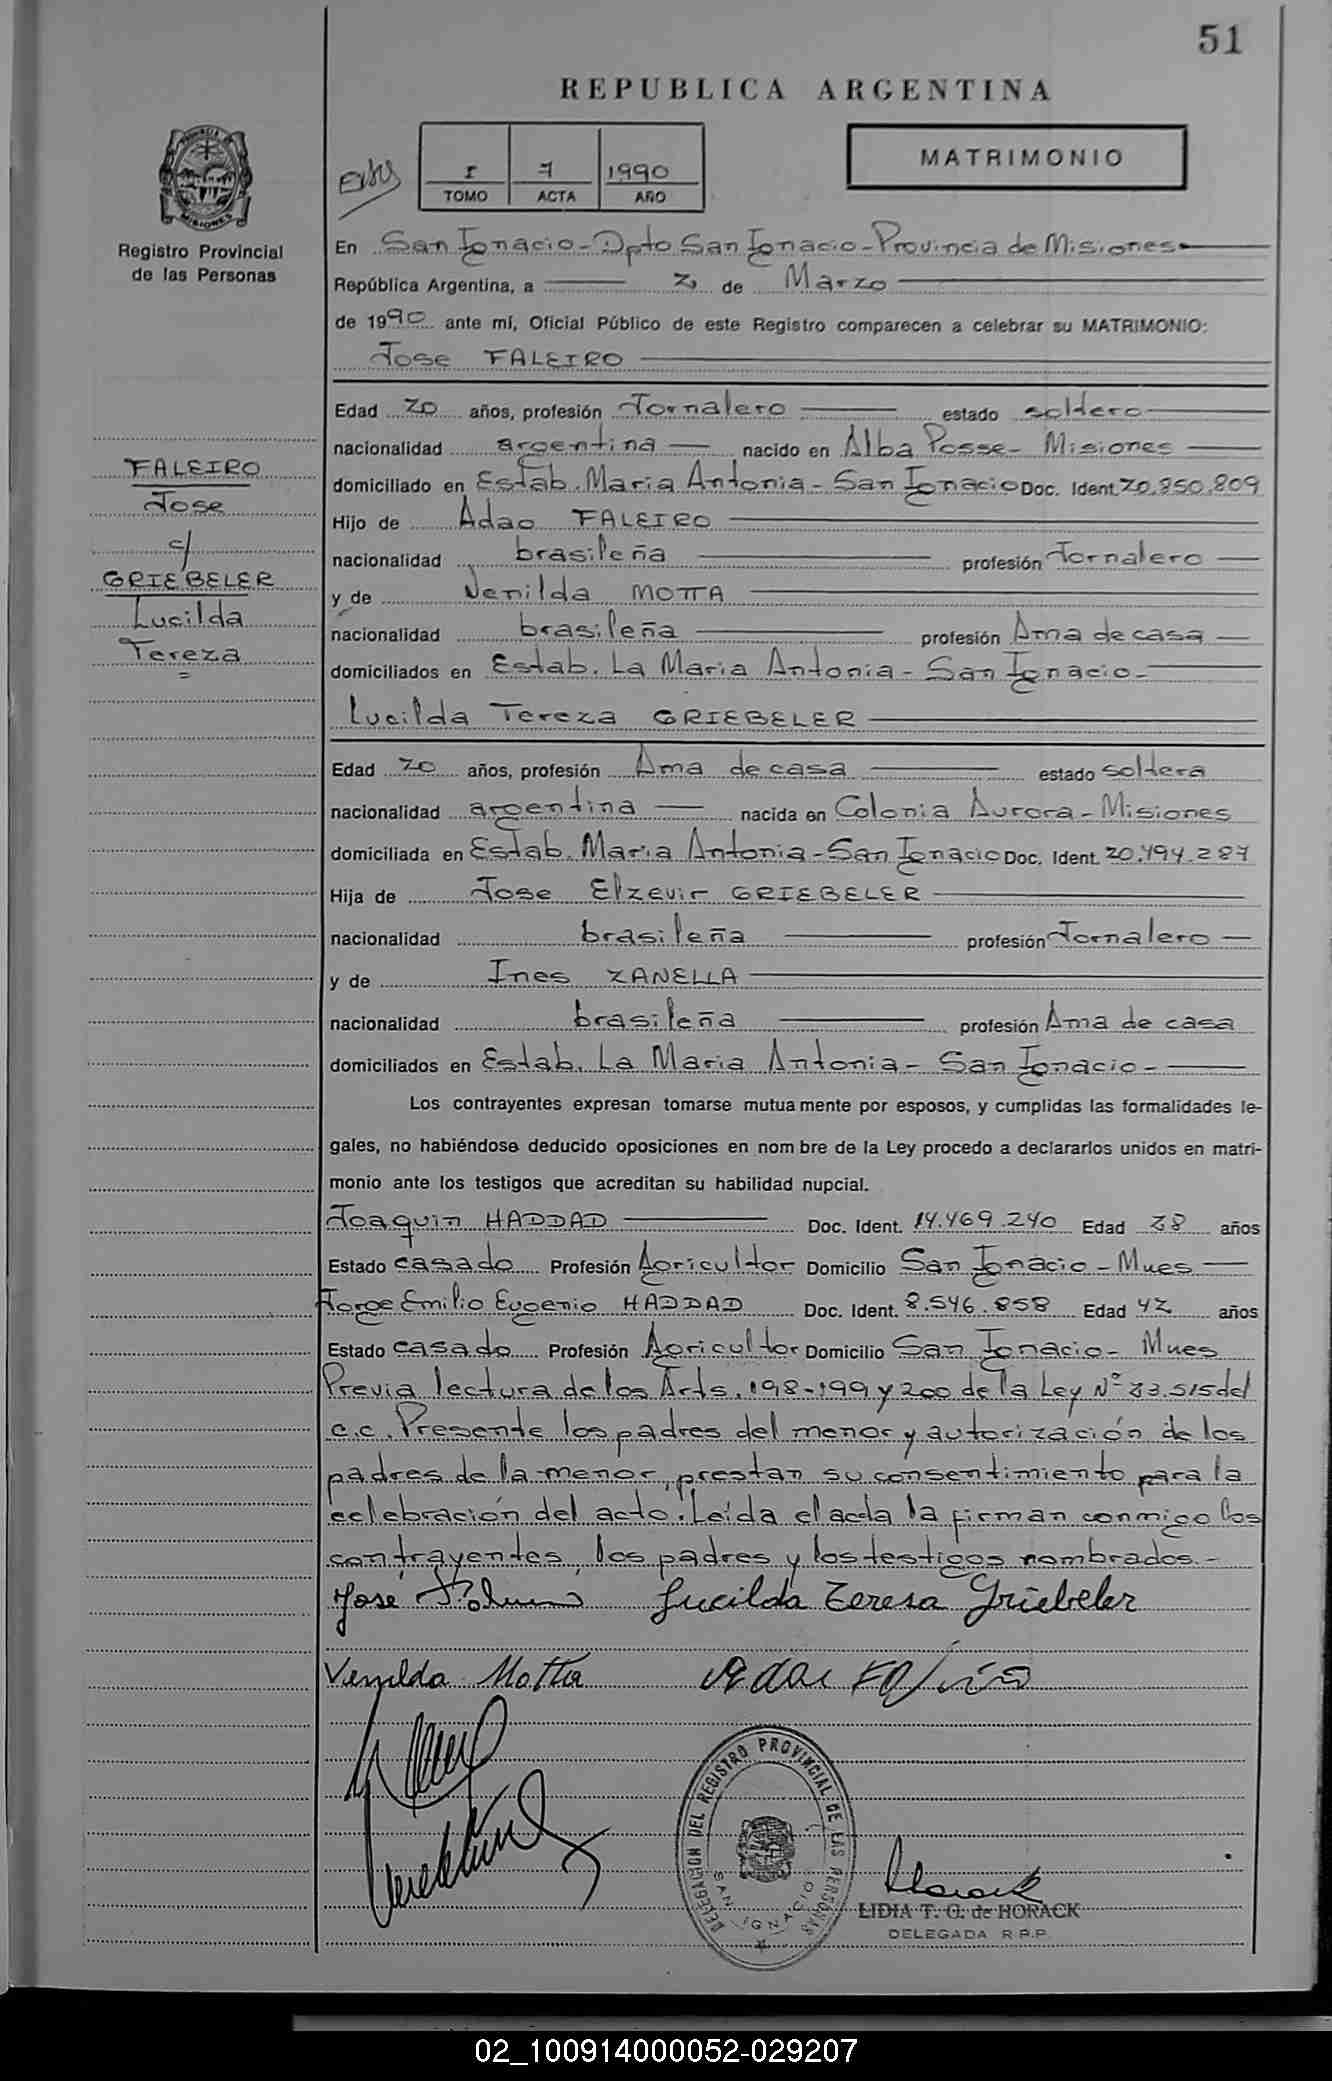 51
REPUBLICA ARGENTINA
I 7 1990
TOMO ACTA AÑO
MATRIMONIO
Registro Provincial
de las Personas
En San Ignacio - Dpto San Ignacio - Provincia de Misiones
República Argentina, a 2 de Marzo
de 1990 ante mí, Oficial Público de este Registro comparecen a celebrar su MATRIMONIO:
Jose FALEIRO
Edad 20 años, profesión Jornalero estado soltero
nacionalidad argentina nacido en Alba Posse - Misiones
domiciliado en Estab. Maria Antonia - San Ignacio Doc. Ident. 20.850.809
Hijo de Adao FALEIRO
nacionalidad brasileña profesión Jornalero
y de Venilda MOTTA
nacionalidad brasileña profesión Ama de casa
domiciliados en Estab. La Maria Antonia - San Ignacio -
Lucilda Tereza GRIEBELER
FALEIRO
Jose
c/
GRIEBELER
Lucilda
Tereza
Edad 20 años, profesión Ama de casa estado soltera
nacionalidad argentina nacida en Colonia Aurora - Misiones
domiciliada en Estab. Maria Antonia - San Ignacio Doc. Ident. 20.494.287
Hija de Jose Elzevir GRIEBELER
nacionalidad brasileña profesión Jornalero
y de Ines ZANELLA
nacionalidad brasileña profesión Ama de casa
domiciliados en Estab. La Maria Antonia - San Ignacio -
Los contrayentes expresan tomarse mutuamente por esposos, y cumplidas las formalidades le-
gales, no habiéndose deducido oposiciones en nombre de la Ley procedo a declararlos unidos en matri-
monio ante los testigos que acreditan su habilidad nupcial.
Joaquin HADDAD Doc. Ident. 14.469.240 Edad 28 años
Estado casado Profesión Agricultor Domicilio San Ignacio - Mnes
Jorge Emilio Eugenio HADDAD Doc. Ident. 8.546.858 Edad 42 años
Estado casado Profesión Agricultor Domicilio San Ignacio - Mnes
Previa lectura de los Arts. 198-199 y 200 de la Ley Nº 23.515 del
c.c. Presente los padres del menor y autorización de los
padres de la menor, prestan su consentimiento para la
celebración del acto. Leída el acta la firman conmigo los
contrayentes, los padres y los testigos nombrados. -
José Lucilda Teresa Griebeler
Venilda Motta Adao
DELEGACION DEL REGISTRO PROVINCIAL DE LAS PERSONAS
SAN IGNACIO
Horack
LIDIA T. G. de HORACK
DELEGADA R.P.P.
02_100914000052-029207